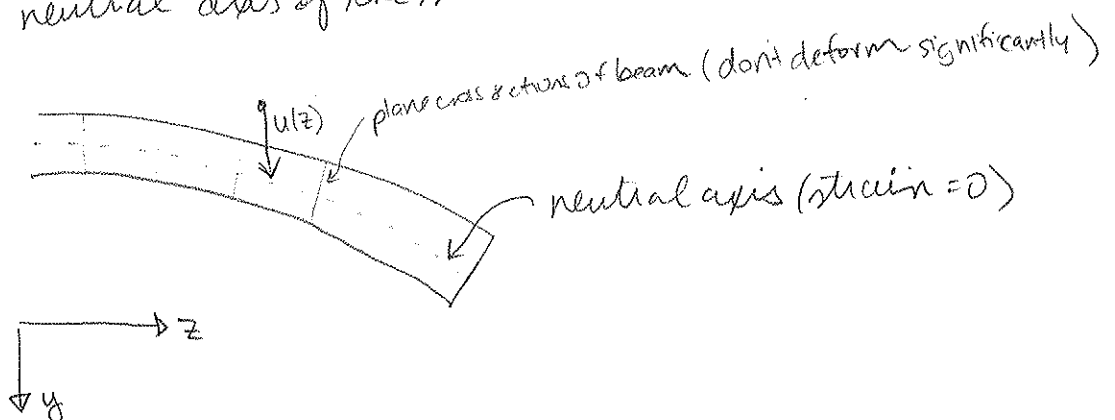 neutral axis of
u(z)
plane cross sections of beam (don't deform significantly)
neutral axis (strain = 0)
z
y